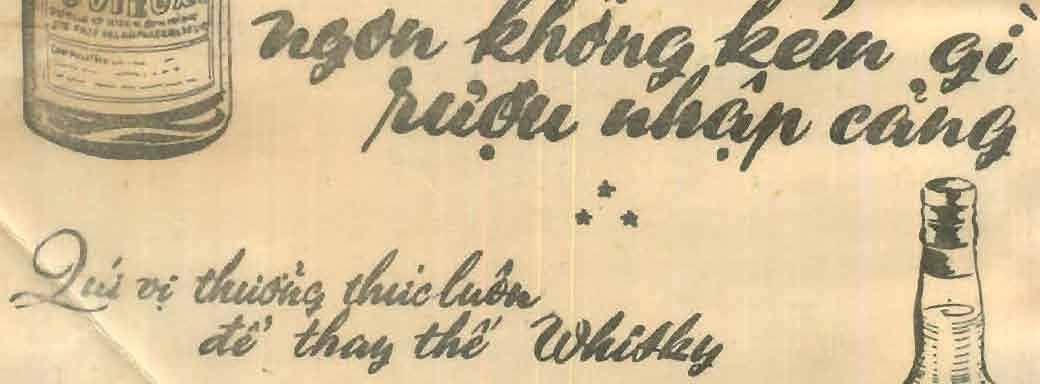 ngon không kém gì
rượu nhập cảng
Quí vị thưởng thức luôn
để thay thế Whisky